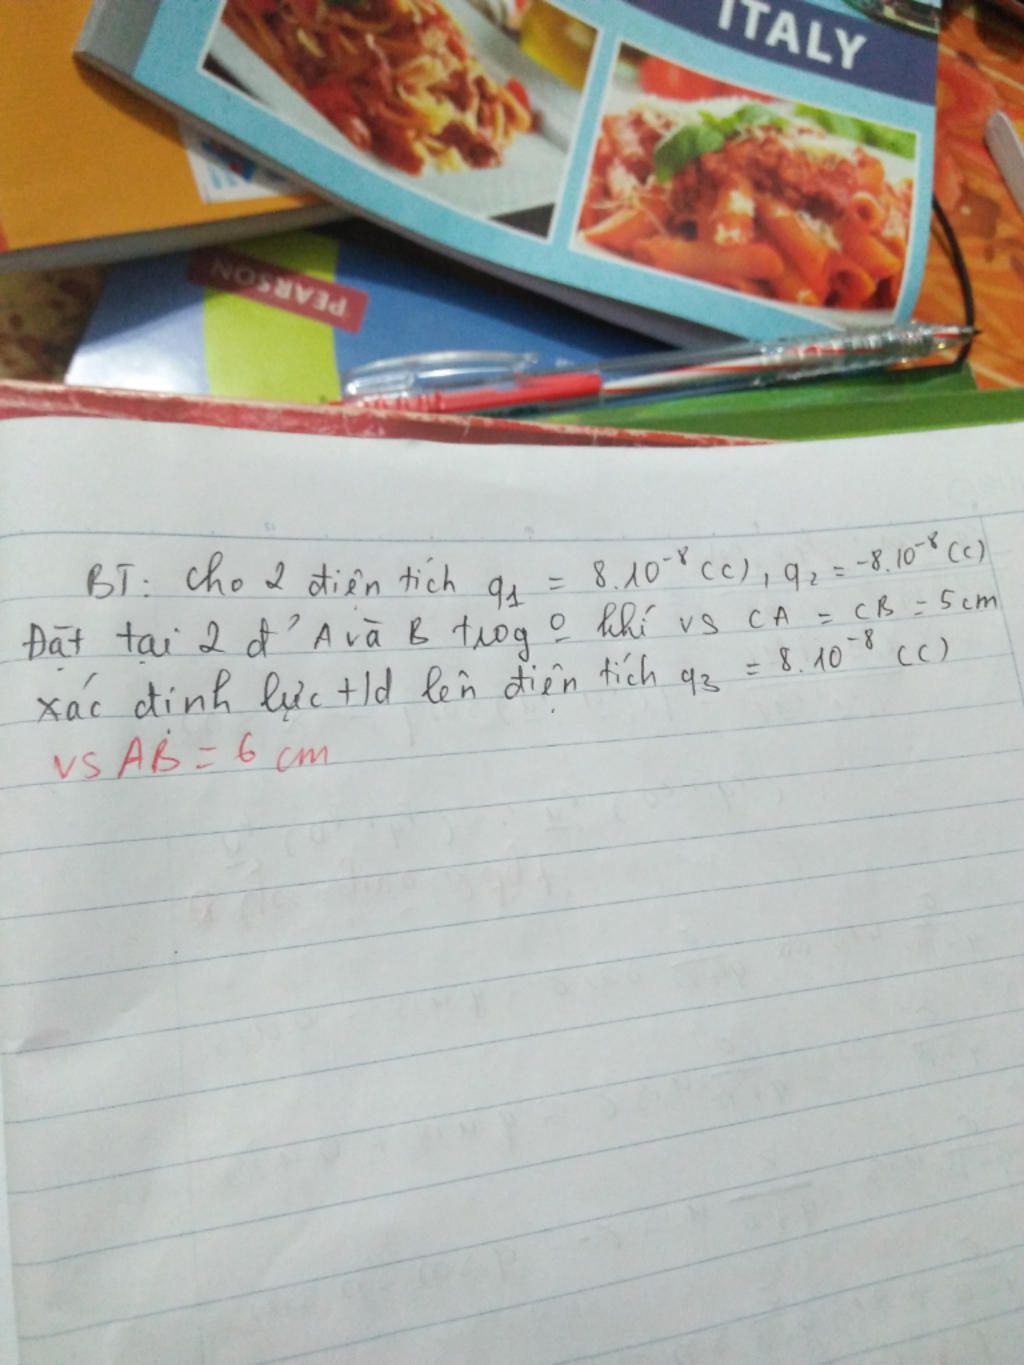 ITALY
PEARSON
BT: Cho 2 điện tích q₁ = 8.10⁻⁸ (C), q₂ = -8.10⁻⁸ (C)
Đặt tại 2 đ' A và B trog o khí vs CA = CB = 5 cm
xác định lực t/d lên điện tích q₃ = 8.10⁻⁸ (C)
vs AB = 6 cm